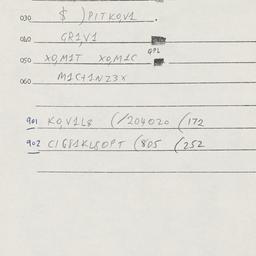 030 $ )PITKQ,V1 .
040 GR1,V1
050 XQ,M1T XQ,M1C GPL
060 M1C+1NZ3X
901 KQ,V1L8 (/204020 (172
902 C1G81KLSOPT (805 (252